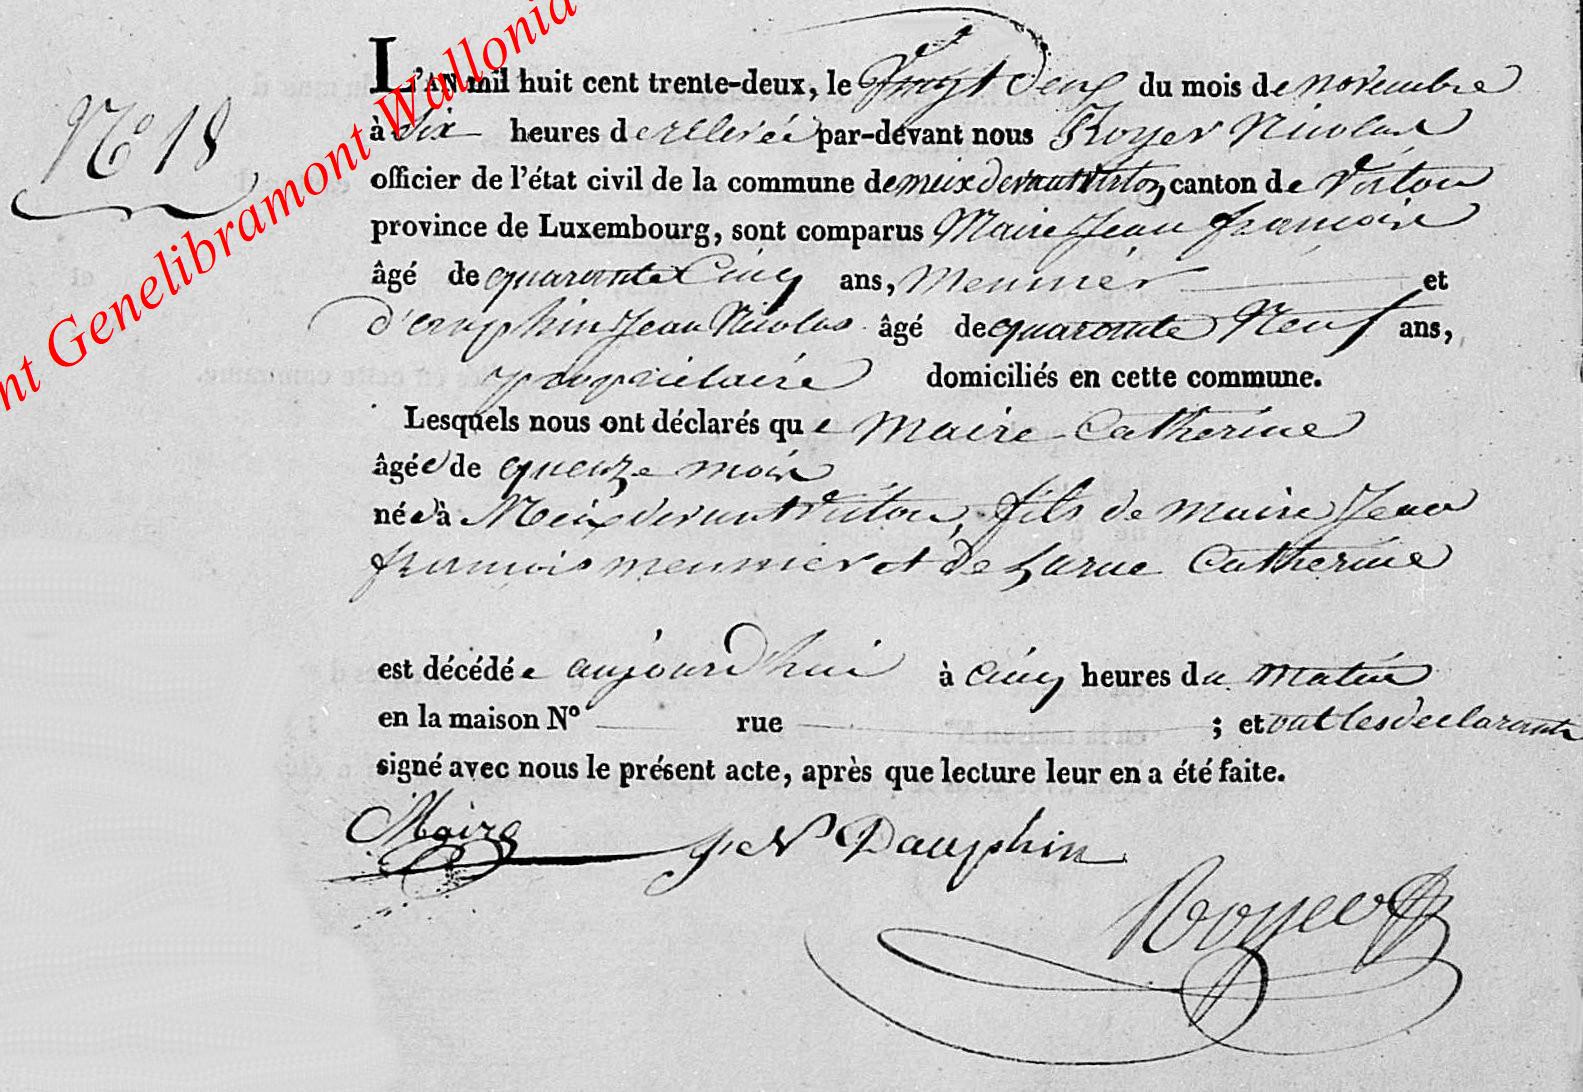 nt Genelibramont Wallonia
N° 18
L'AN mil huit cent trente-deux, le Vingt deux du mois de novembre
à six heures de relevée par-devant nous Royer Nicolas
officier de l'état civil de la commune de meix devant virton canton de Virton
province de Luxembourg, sont comparus Maire Jean françois
âgé de quarante Cinq ans, Meunier et
d'auphin Jean Nicolas âgé de quarante Neuf ans,
propriétaire domiciliés en cette commune.
Lesquels nous ont déclarés que Maire Catherine
âgée de quenze mois
née à Meix devant Virton, fils de Maire Jean
françois meunier et de Larue Catherine
est décédée aujourd'hui à cinq heures du Matin
en la maison N° rue ; et ont les declarants
signé avec nous le présent acte, après que lecture leur en a été faite.
Maire J. N. Dauphin
Royer